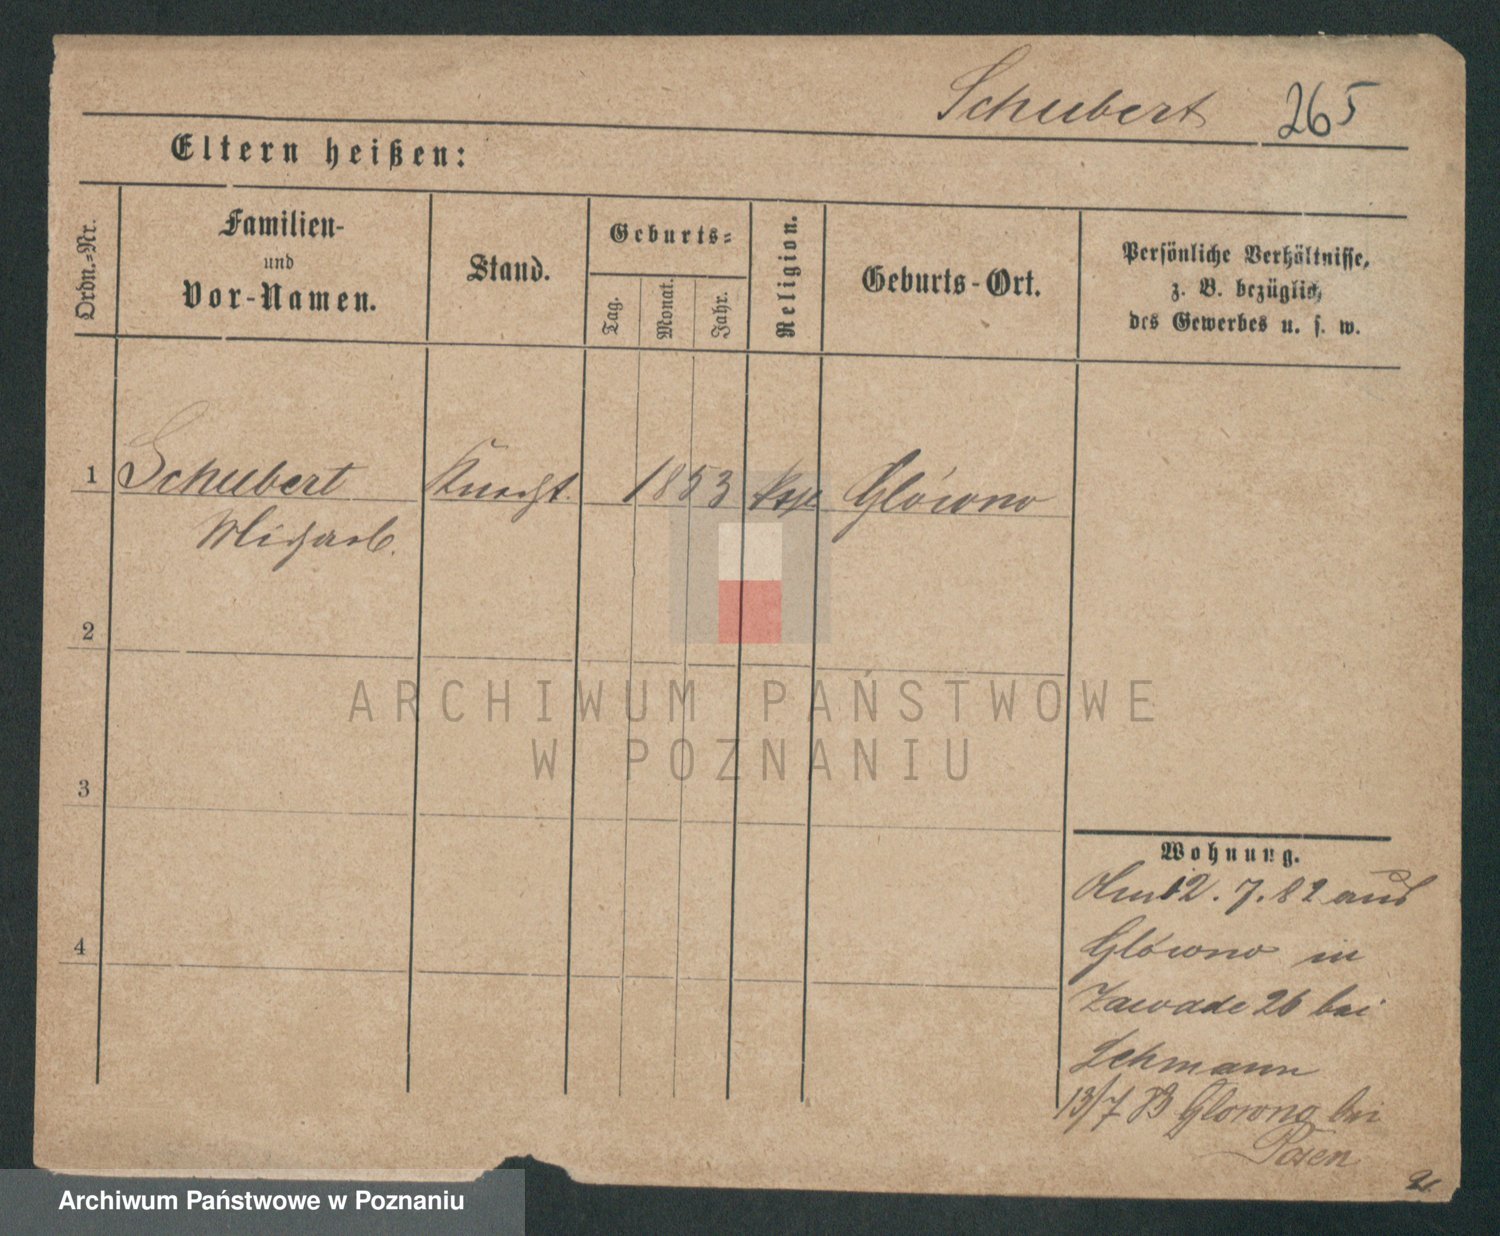 Schubert 265
Eltern heißen:
Ordn.=Nr.
Familien-
und
Vor-Namen.
Stand.
Geburts=
Tag.
Monat.
Jahr.
Religion.
Geburts-Ort.
Persönliche Verhältnisse,
z. B. bezüglich
des Gewerbes u. s. w.
1 Schubert Knecht 1853 Główno
Michael.
2
3
4
Wohnung.
12. 7. 82 aus
Główno in
Zawade 26 bei
Lehmann
13/7 83 Glowno bei
Posen
ARCHIWUM PAŃSTWOWE
W POZNANIU
Archiwum Państwowe w Poznaniu